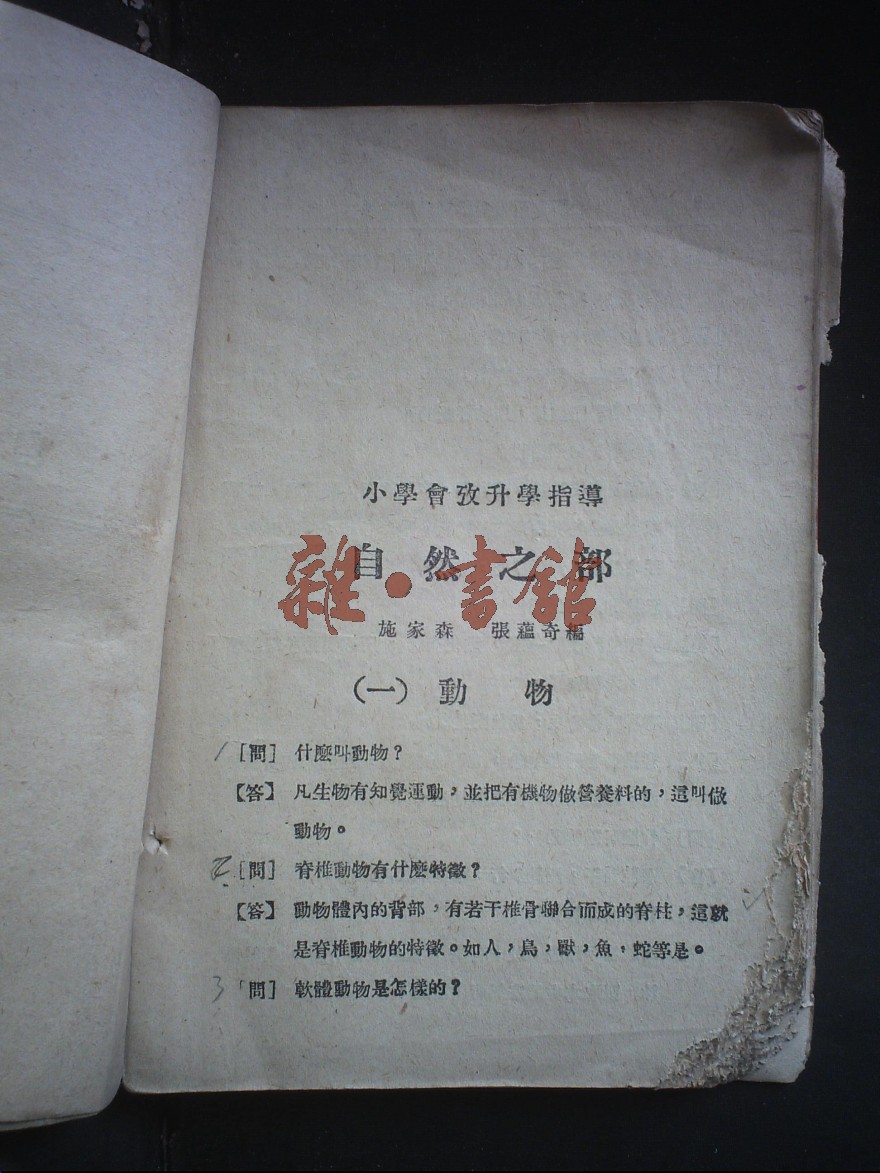 小學會攷升學指導
自然之部
雜·書舘
施家森 張蘊奇編
(一)動物
1 [問] 什麼叫動物？
【答】 凡生物有知覺運動，並把有機物做營養料的，這叫做
動物。
2 [問] 脊椎動物有什麼特徵？
【答】 動物體內的背部，有若干椎骨聯合而成的脊柱，這就
是脊椎動物的特徵。如人，鳥，獸，魚，蛇等是。
3 「問] 軟體動物是怎樣的？